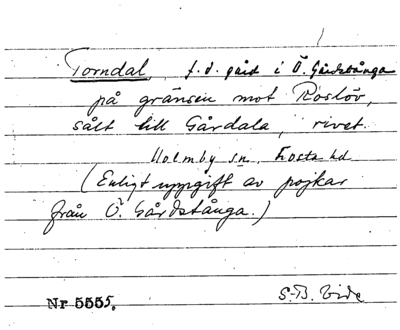 Torndal, f.d. gård i Ö. Gårdstånga
på gränsen mot Roslöv,
sålt till Gårdala, rivet.
Holmby sn., Frosta hd
(Enligt uppgift av pojkar
från Ö. Gårdstånga.)
S.-B. Vide
Nr 5555.